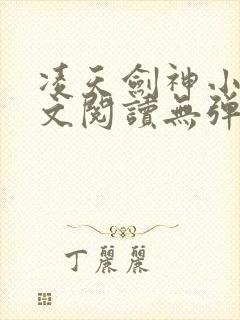 凌天劍神小
文閱讀無彈
丁麗麗